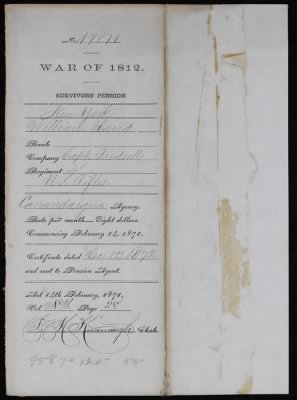 No. 19871
WAR OF 1812.
SURVIVORS' PENSION.
New York
William Laird
Rank
Company Capt.
Regiment
U.S. Rifles
Canandaigua Agency.
Rate per month Eight dollars.
Commencing February 14, 1871.
Certificate dated Dec 1872
and sent to Pension Agent.
Act 14th February, 1871.
Vol. Page 28
Clerk.
9587 125 55